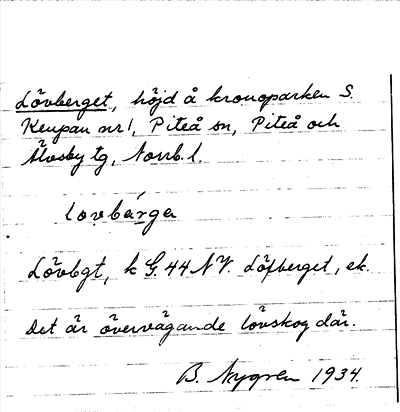 Lövberget, höjd å kronoparken S.
Keupan nr 1, Piteå sn, Piteå och
Älvsby tg, Norrb. l.
lo̬vbärga
Lövbgt, k G. 44 NV. Löfberget, ek.
Det är övervägande lövskog där.
B. Nygren 1934.